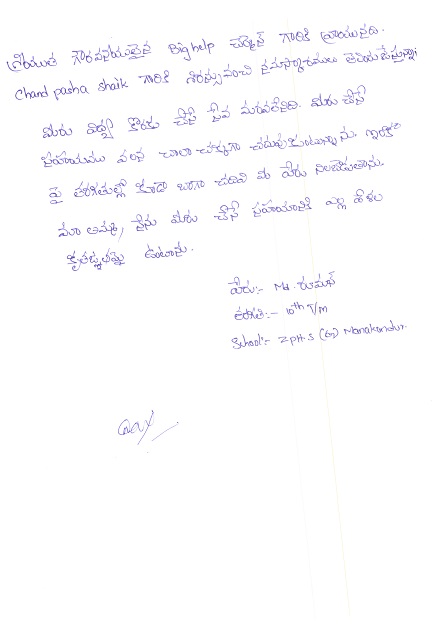 శ్రీయుత గౌరవనీయులైన Big help చైర్మెన్ గారికి వ్రాయునది.
Chand pasha shaik గారికి శిరస్సువంచి నమస్కారములు తెలియజేస్తున్నాను
మీరు విద్య కొరకు చేసే సేవ మరవలేనిది. మీరు చేసే
సహాయము వలన చాలా చక్కగా చదువుకుంటున్నాను.
పై తరగతుల్లో కూడా బాగా చదివి మీ పేరు నిలబెడుతాను.
మా అమ్మ, నేను మీరు చేసే సహాయానికి ఎల్ల వేళల
కృతజ్ఞులమై ఉంటాను.
పేరు:- Md.
తరగతి:- 10th T/m
School:- Z.P.H.S (G) Manakondur.